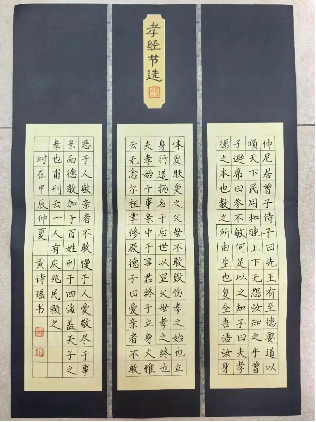 孝经节选
仲尼居曾子侍子曰先王有至德要道以
顺天下民用和睦上下无怨汝知之乎曾
子避席曰参不敏何足以知之子曰夫孝
德之本也教之所由生也复坐吾语汝身
体发肤受之父母不敢毁伤孝之始也立
身行道扬名于后世以显父母孝之终也
夫孝始于事亲中于事君终于立身大雅
云无念尔祖聿修厥德子曰爱亲者不敢
恶于人敬亲者不敢慢于人爱敬尽于事
亲而德教加于百姓刑于四海盖天子之
孝也甫刑云一人有庆兆民赖之
时在甲辰仲夏 黄诗瑶书